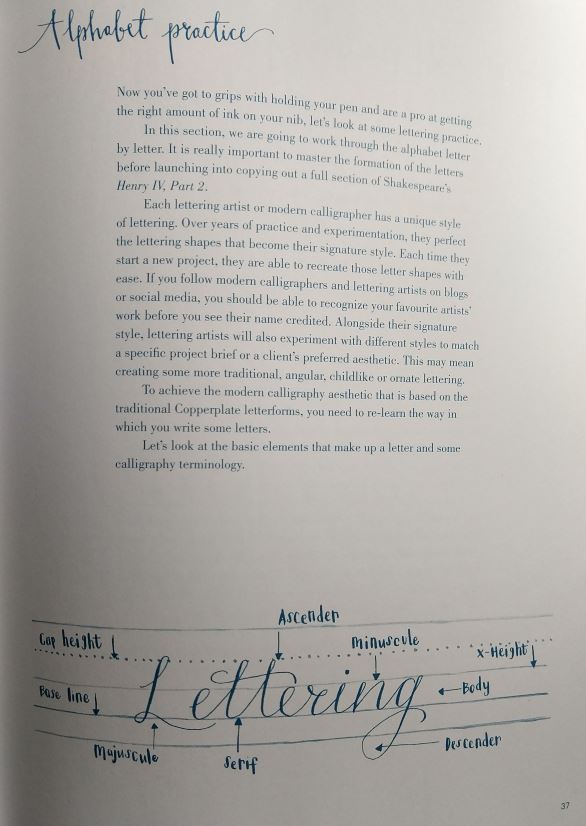 Alphabet practice
Now you've got to grips with holding your pen and are a pro at getting
the right amount of ink on your nib, let's look at some lettering practice.
In this section, we are going to work through the alphabet letter
by letter. It is really important to master the formation of the letters
before launching into copying out a full section of Shakespeare's
Henry IV, Part 2.
Each lettering artist or modern calligrapher has a unique style
of lettering. Over years of practice and experimentation, they perfect
the lettering shapes that become their signature style. Each time they
start a new project, they are able to recreate those letter shapes with
ease. If you follow modern calligraphers and lettering artists on blogs
or social media, you should be able to recognize your favourite artists'
work before you see their name credited. Alongside their signature
style, lettering artists will also experiment with different styles to match
a specific project brief or a client's preferred aesthetic. This may mean
creating some more traditional, angular, childlike or ornate lettering.
To achieve the modern calligraphy aesthetic that is based on the
traditional Copperplate letterforms, you need to re-learn the way in
which you write some letters.
Let's look at the basic elements that make up a letter and some
calligraphy terminology.
Ascender
Cap height
Minuscule
x-Height
Base line
Lettering
Body
Majuscule
Serif
Descender
37